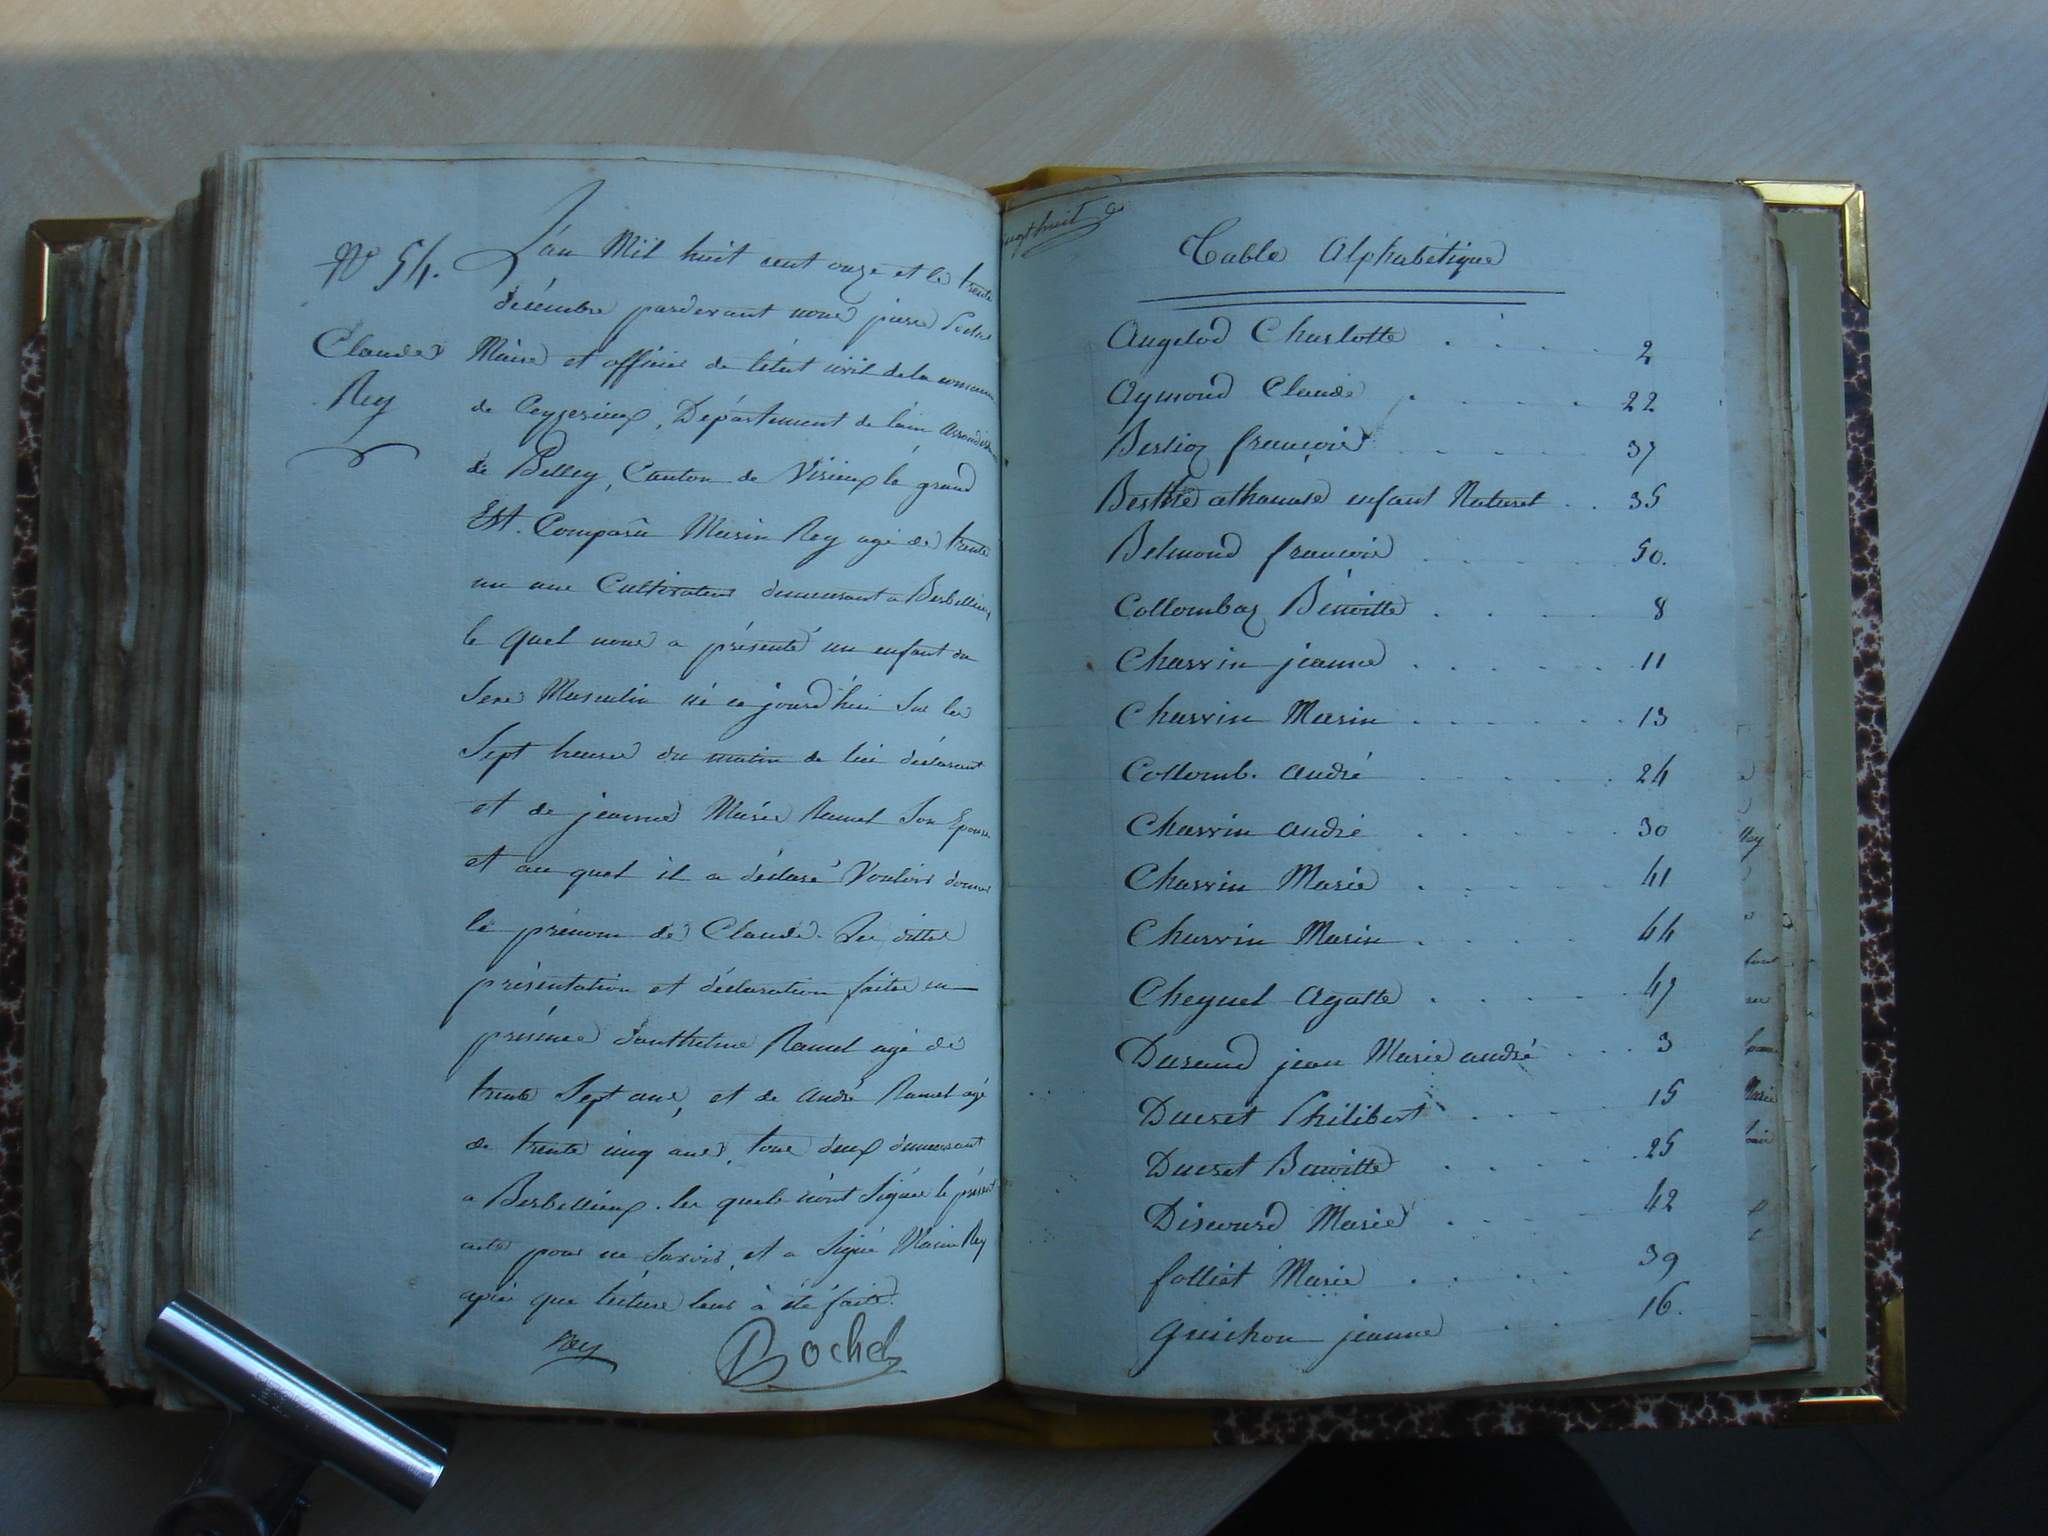 N° 54.
Claude
Rey
L'an Mil huit cent onze et le trente
décémbre pardevant nous pierre Rochet
Maire et officier de létat civil de la commune
de Ceyzerieux, Département de lain arrondis
de Belley, Canton de Virieux le grand
Est. Comparû Marin Rey agé de trente
un ans Cultivateur demeurant a Berbellieux,
le quel nous a présenté un enfant du
Sexe Masculin né ce jourd'hui sur les
Sept heures du matin de lui déclarant
et de jeanne Marie Ramel Son Epouse
et au quel il a déclaré Vouloir donner
le prénom de Claude. Les dittes
présentation et déclaration faites en
présence d'anthelme Ramel agé de
trente Sept ans, et de andré Ramel agé
de trente cinq ans, tous deux demeurant
a Berbellieux. les quels n'ont Signés le présent
acte pour ne Savoir, et a Signé Marin Rey
après que lécture leur à été faite.
Rey Rochet
vingt huit
Table Alphabétique
Angelod Charlotte . . . . 2
Aymond Claude . . . . 22
Berlioz françois . . . . 37
Berthet athanase enfant Naturel . . 35
Belmond françois . . . . 50.
Collombaz Bénoitte . . . . 8
Charvin jeanne . . . . . 11
Charvin Marin . . . . . 13
Collomb. andré . . . . . 24
Charvin andré . . . . . 30
Charvin Marie . . . . . 41
Charvin Marin . . . . . 44
Cheynel Agatte . . . . . 47
Durand jean Marie andré . . . 3
Ducret Philibert . . . . 15
Ducret Benoitte . . . . . 25
Discourd Marie . . . . . 42
folliet Marie . . . . . 39
guichon jeanne . . . . 16.